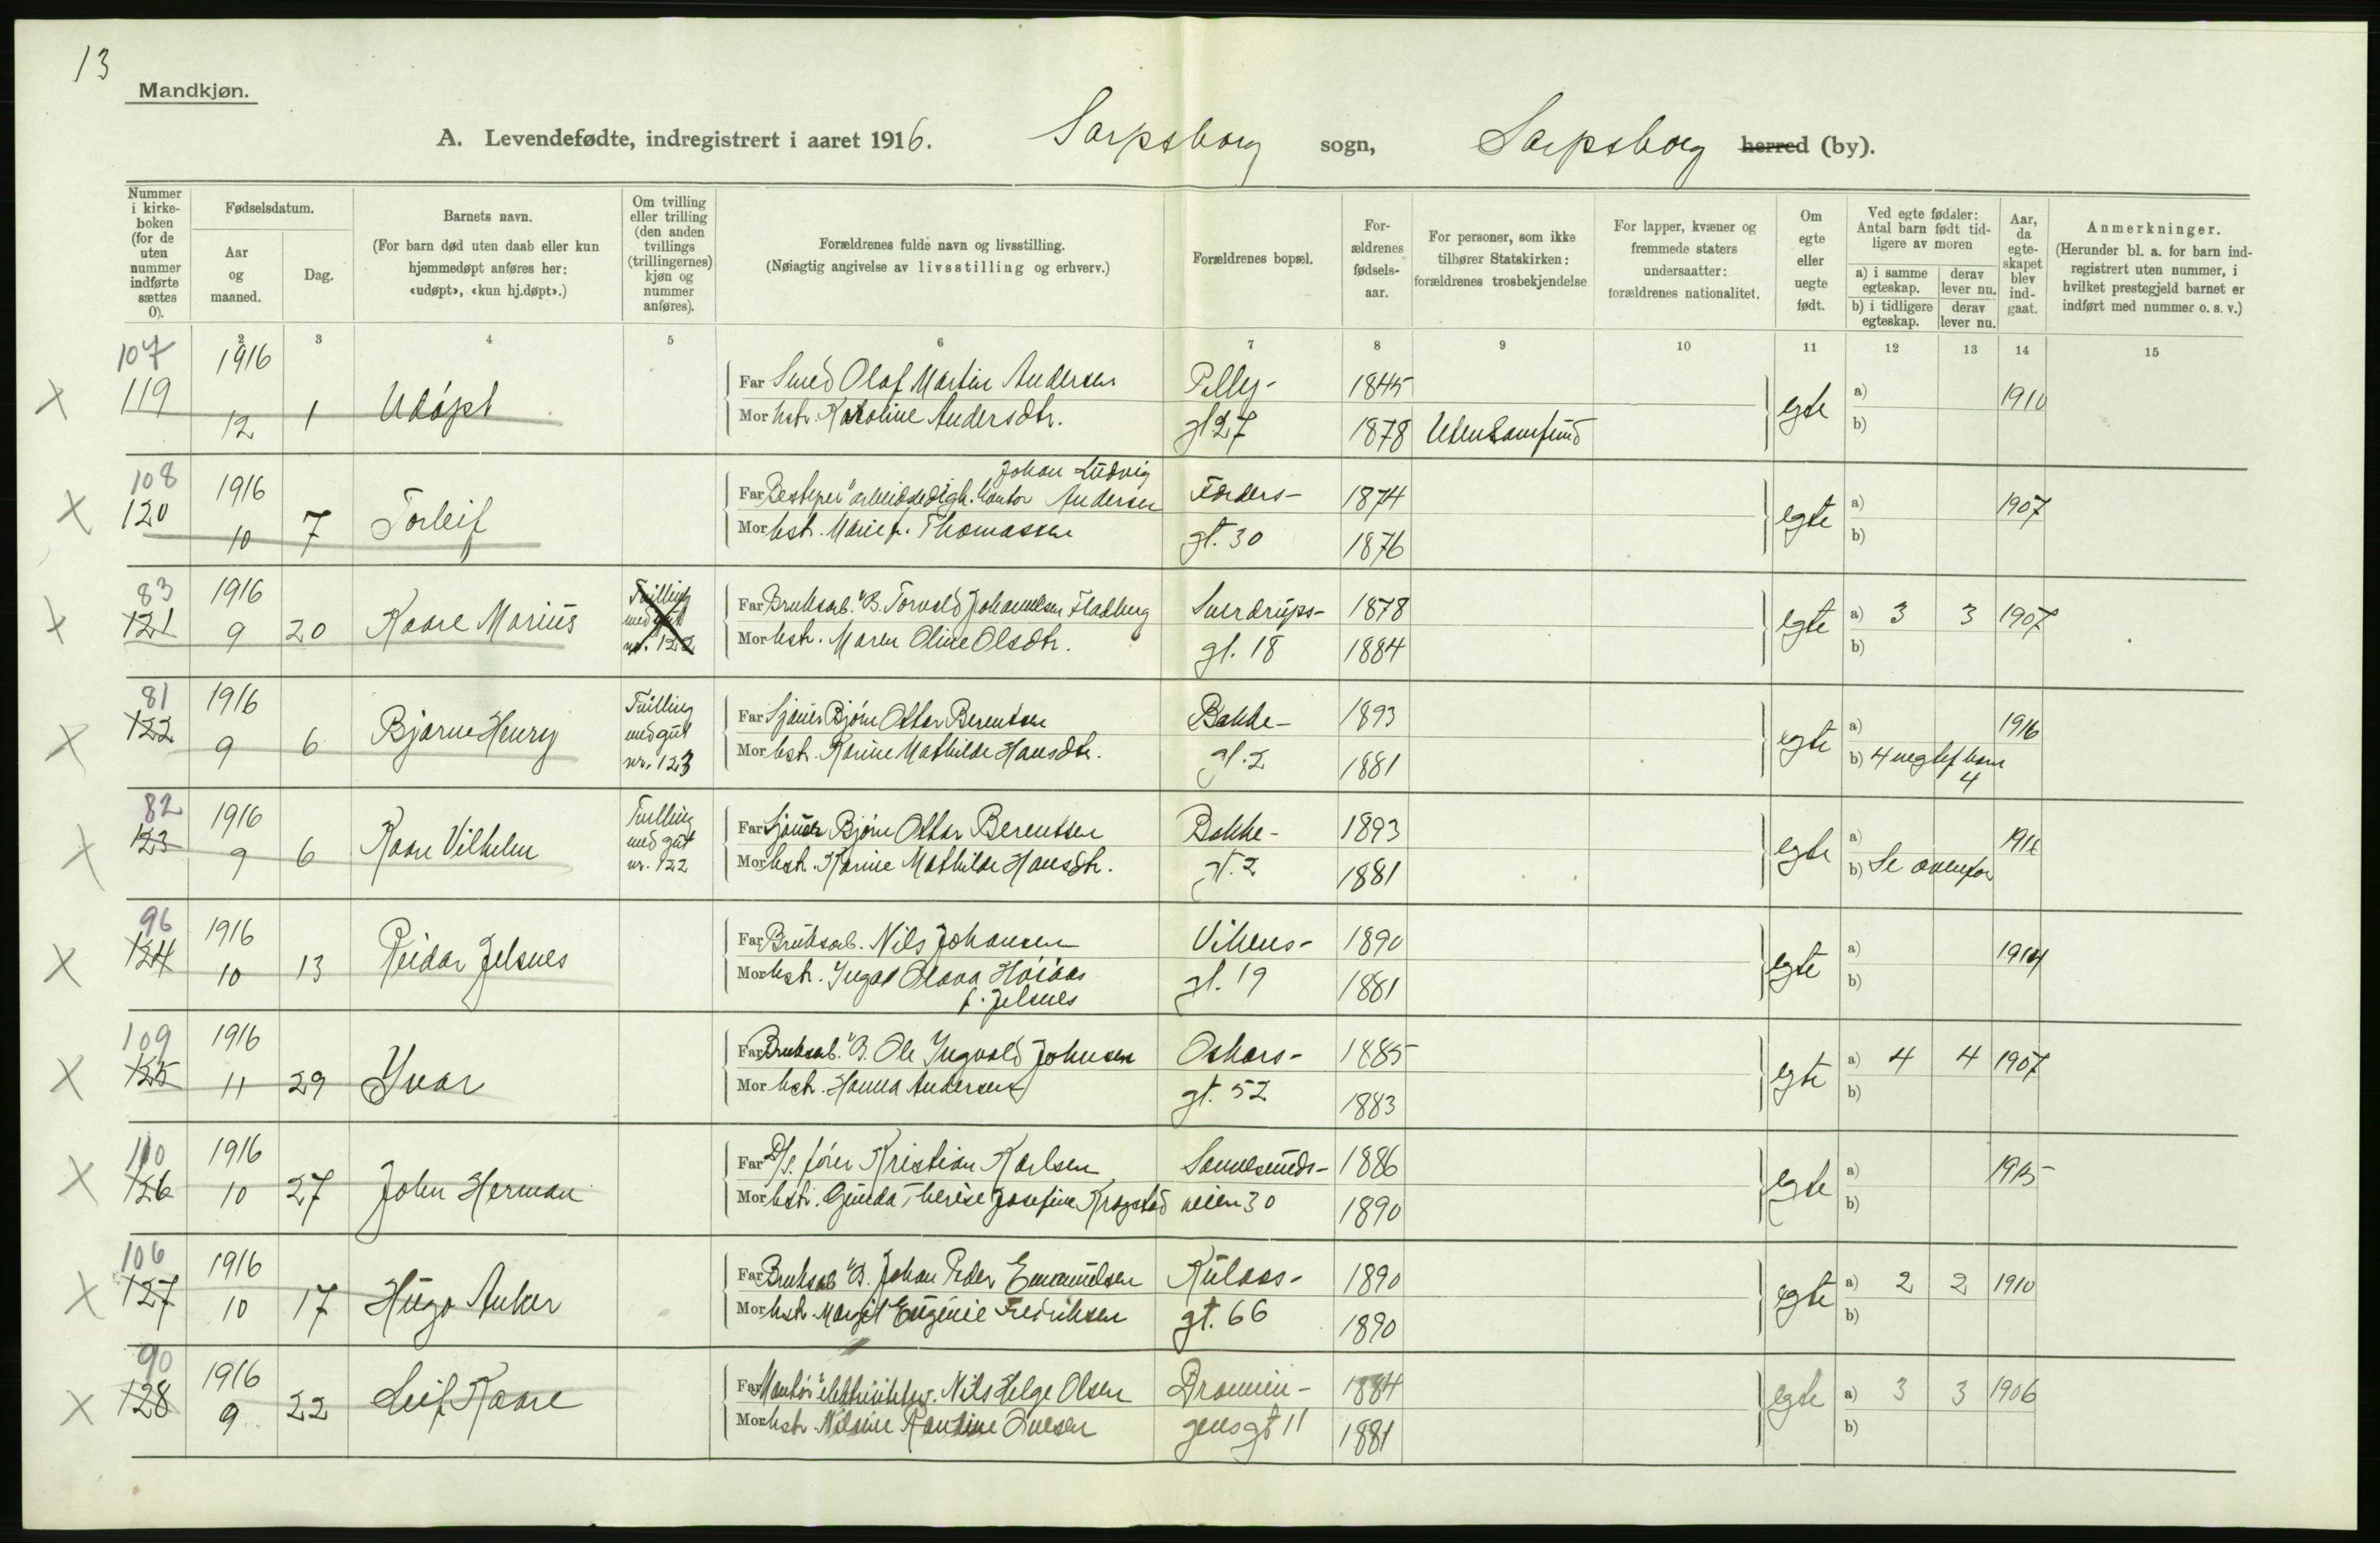 13
Mandkjøn.
A. Levendefødte, indregistrert i aaret 1916. Sarpsborg sogn, Sarpsborg herred (by).
Nummer i kirkeboken (for de uten nummer indførte sættes 0).
Fødselsdatum.
Aar og maaned.
Dag.
Barnets navn.
(For barn død uten daab eller kun hjemmedøpt anføres her: «udøpt», «kun hj.døpt».)
Om tvilling eller trilling (den anden tvillings (trillingernes) kjøn og nummer anføres).
Forældrenes fulde navn og livsstilling.
(Nøiagtig angivelse av livsstilling og erhverv.)
Forældrenes bopæl.
Forældrenes fødselsaar.
For personer, som ikke tilhører Statskirken: forældrenes trosbekjendelse
For lapper, kvæner og fremmede staters undersaatter: forældrenes nationalitet.
Om egte eller uegte født.
Ved egte fødsler: Antal barn født tidligere av moren
a) i samme egteskap.
derav lever nu.
b) i tidligere egteskap.
derav lever nu.
Aar, da egteskapet blev indgaat.
Anmerkninger.
(Herunder bl. a. for barn indregistrert uten nummer, i hvilket prestegjeld barnet er indført med nummer o. s. v.)
2 3 4 5 6 7 8 9 10 11 12 13 14 15
107 1916
× 119 12 1 Udøpt
Far Smed Olaf Martin Andersen 1845
Mor hstr. Karoline Andersdtr. gt 27 1878 Uten Samfund
egte a) b) 1910
108 1916
× 120 10 7 Torleif
Johan Ludvig
Far arbeidsledigh. kontor Andersen 1874
Mor hstr. Marie f. Thomassen gt. 30 1876
egte a) b) 1907
83 1916
× 121 9 20 Kaare Marius
Tvilling med gut nr. 122
Far Bruksarb. "B. Torvald Johannesen Fladberg Sverdrups- 1878
Mor hstr. Maren Oline Olsdtr. gt. 18 1884
egte a) 3 3 1907
b)
81 1916
× 122 9 6 Bjarne Henry
Tvilling med gut nr. 123
Far Sjauer Bjørn Ottar Berentsen Bakke- 1893
Mor hstr. Karine Mathilde Hansdtr. gt. 2 1881
egte a) 1916
b) 4 uegtef barn
4
82 1916
× 123 9 6 Kaare Vilhelm
Tvilling med gut nr. 122
Far Sjauer Bjørn Ottar Berentsen Bakke- 1893
Mor hstr. Karine Mathilde Hansdtr. gt. 2 1881
egte a) 1916
b) Se ovenfor
96 1916
× 124 10 13 Reidar Jelsnes
Far Bruksarb. Nils Johansen Vikens- 1890
Mor hstr. Olava gt. 19 1881
f. Jelsnes
egte a) b) 1914
109 1916
× 125 11 29 Yvar
Far Bruksarb. "B. Ole Yngvald Johnsen Oskars- 1885
Mor hstr. Hanna Andersen gt. 52 1883
egte a) 4 4 1907
b)
110 1916
× 126 10 27 John Herman
Far D/s. fører Kristian Karlsen Sannesunds- 1886
Mor hstr. Gunda Therese Josefine Krogstad veien 30 1890
egte a) b) 1915
106 1916
× 127 10 17 Hugo Anker
Far Bruksarb "B. Johan Peder Emanuelsen Kulaas- 1890
Mor hstr. Margit Eugenie Fredriksen gt. 66 1890
egte a) 2 2 1910
b)
90 1916
× 128 9 22 Leif Kaare
Far Montør Nils Helge Olsen Dronnin- 1884
Mor hstr. Nilsine gensgt 11 1881
egte a) 3 3 1906
b)